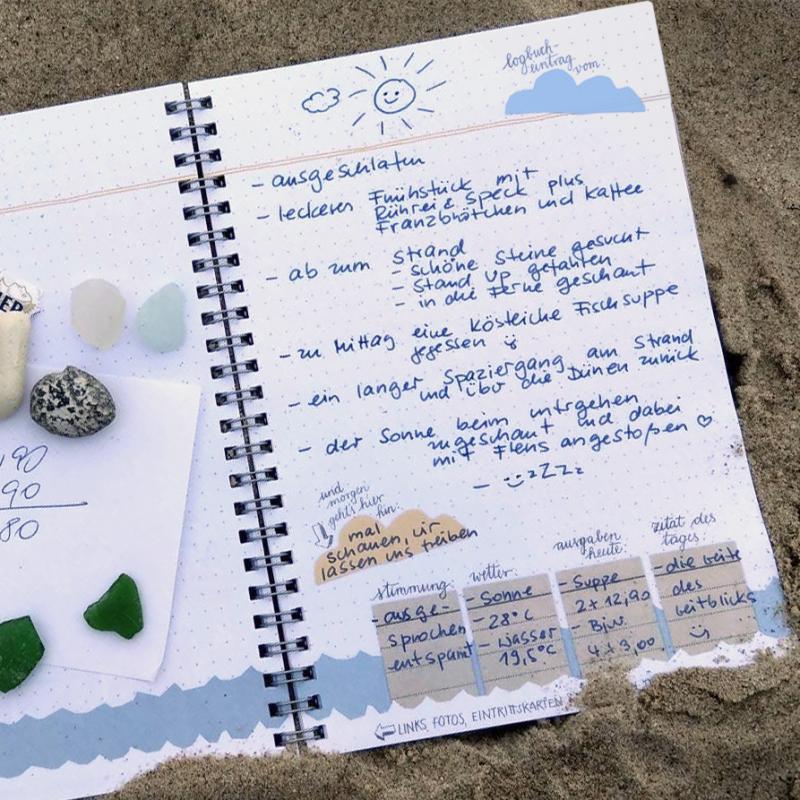 logbuch-
eintrag
vom:
- ausgeschlafen
- leckeres Frühstück mit
Rührei & Speck plus
Franzbrötchen und Kaffee
- ab zum Strand
- schöne Steine gesucht
- Stand up gefahren
- in die Ferne geschaut
- zu Mittag eine köstliche Fischsuppe
gegessen
- ein langer Spaziergang am Strand
und über die Dünen zurück
- der Sonne beim untergehen
zugeschaut und dabei
mit Flens angestoßen ♡
- zZZz
und
morgen
gehts hier
hin:
mal
schauen, wir
lassen uns treiben
stimmung:
- ausge-
sprochen
entspannt
wetter:
- Sonne
- 28°C
- Wasser
19,5°C
ausgaben
heute:
- Suppe
2 x 12,90
- Bier
4 x 3,00
zitat des
tages:
- die Weite
des
Weitblicks
LINKS, FOTOS, EINTRITTSKARTEN
,90
90
80